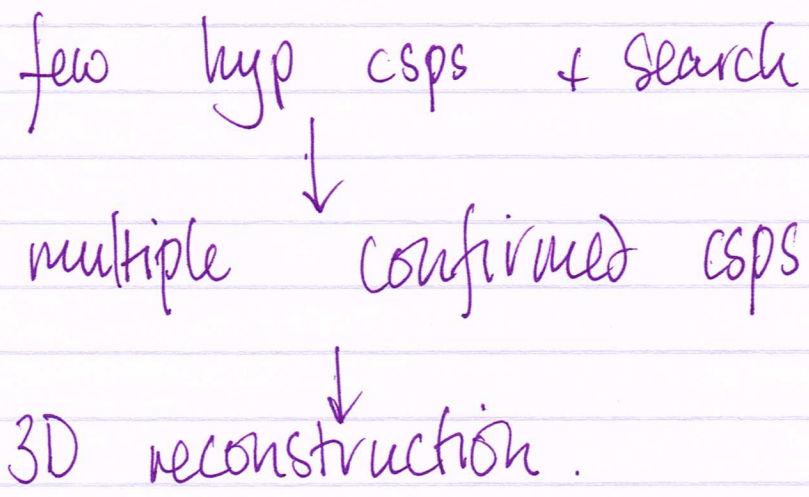 few hyp csps + search
↓
multiple confirmed csps
↓
3D reconstruction.